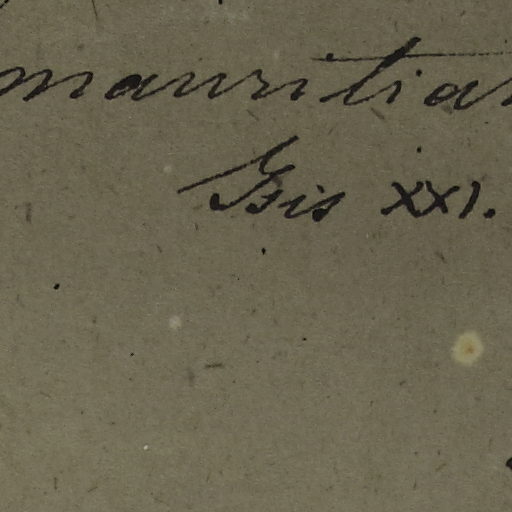 mauritian
Isis XXI.